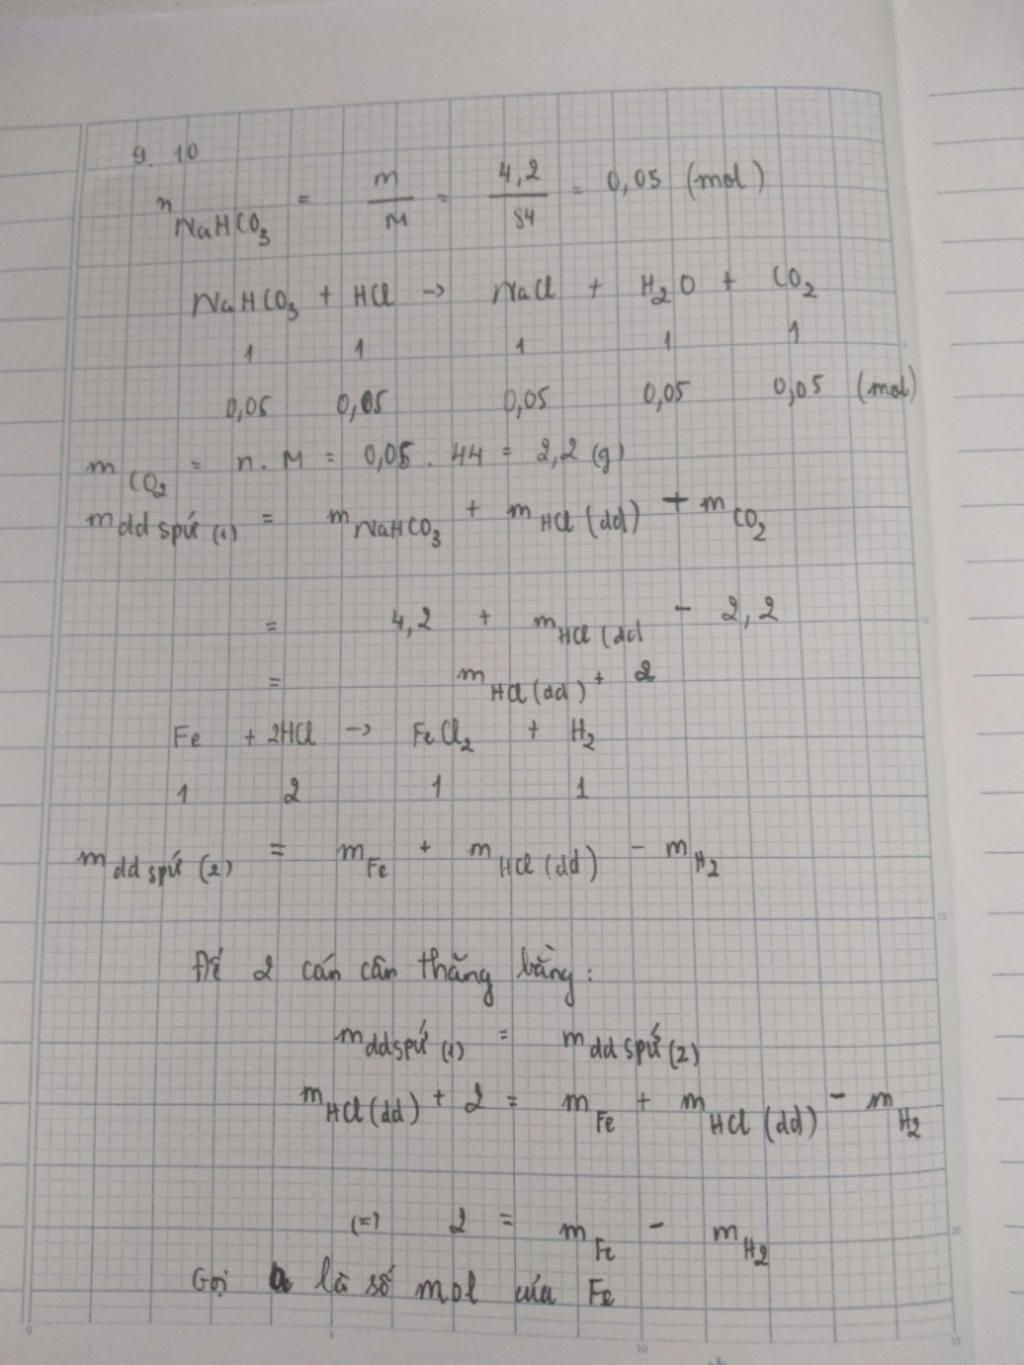 9.10
n NaHCO₃ = m/M = 4,2/84 = 0,05 (mol)
NaHCO₃ + HCl -> NaCl + H₂O + CO₂
1 1 1 1 1
0,05 0,05 0,05 0,05 0,05 (mol)
m CO₂ = n.M = 0,05.44 = 2,2 (g)
m dd spứ (1) = m NaHCO₃ + m HCl (dd) + m CO₂
= 4,2 + m HCl (dd - 2,2
= m HCl (dd) + 2
Fe + 2HCl -> FeCl₂ + H₂
1 2 1 1
m dd spứ (2) = m Fe + m HCl (dd) - m H₂
Để 2 cán cân thăng bằng:
m dd spứ (1) = m dd spứ (2)
m HCl (dd) + 2 = m Fe + m HCl (dd) - m H₂
(=) 2 = m Fe - m H₂
Gọi a là số mol của Fe
0 5 10 15
10
15
20